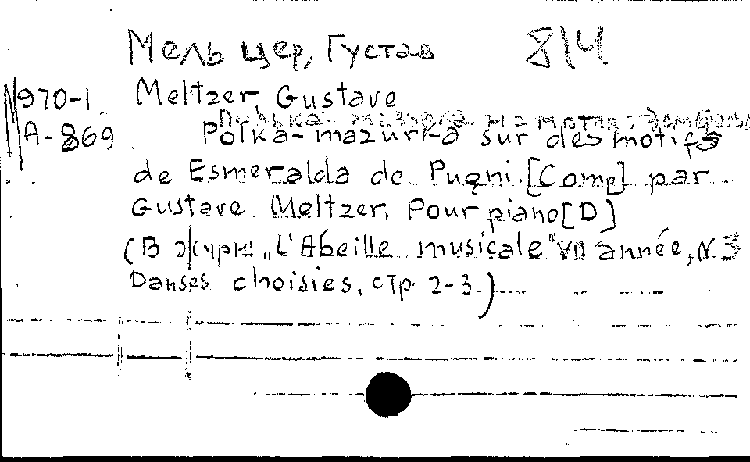 Мельцер, Густав 814
970-1 Meltzer, Gustave
A-869 Polka-mazurka sur des motifs
de Esmeralda de Pugni. [Comp] par
Gustave Meltzer. Pour piano [D]
(В журн „L'Abeille musicale" VII année, N. 3
Danses choisies, стр 2-3.)